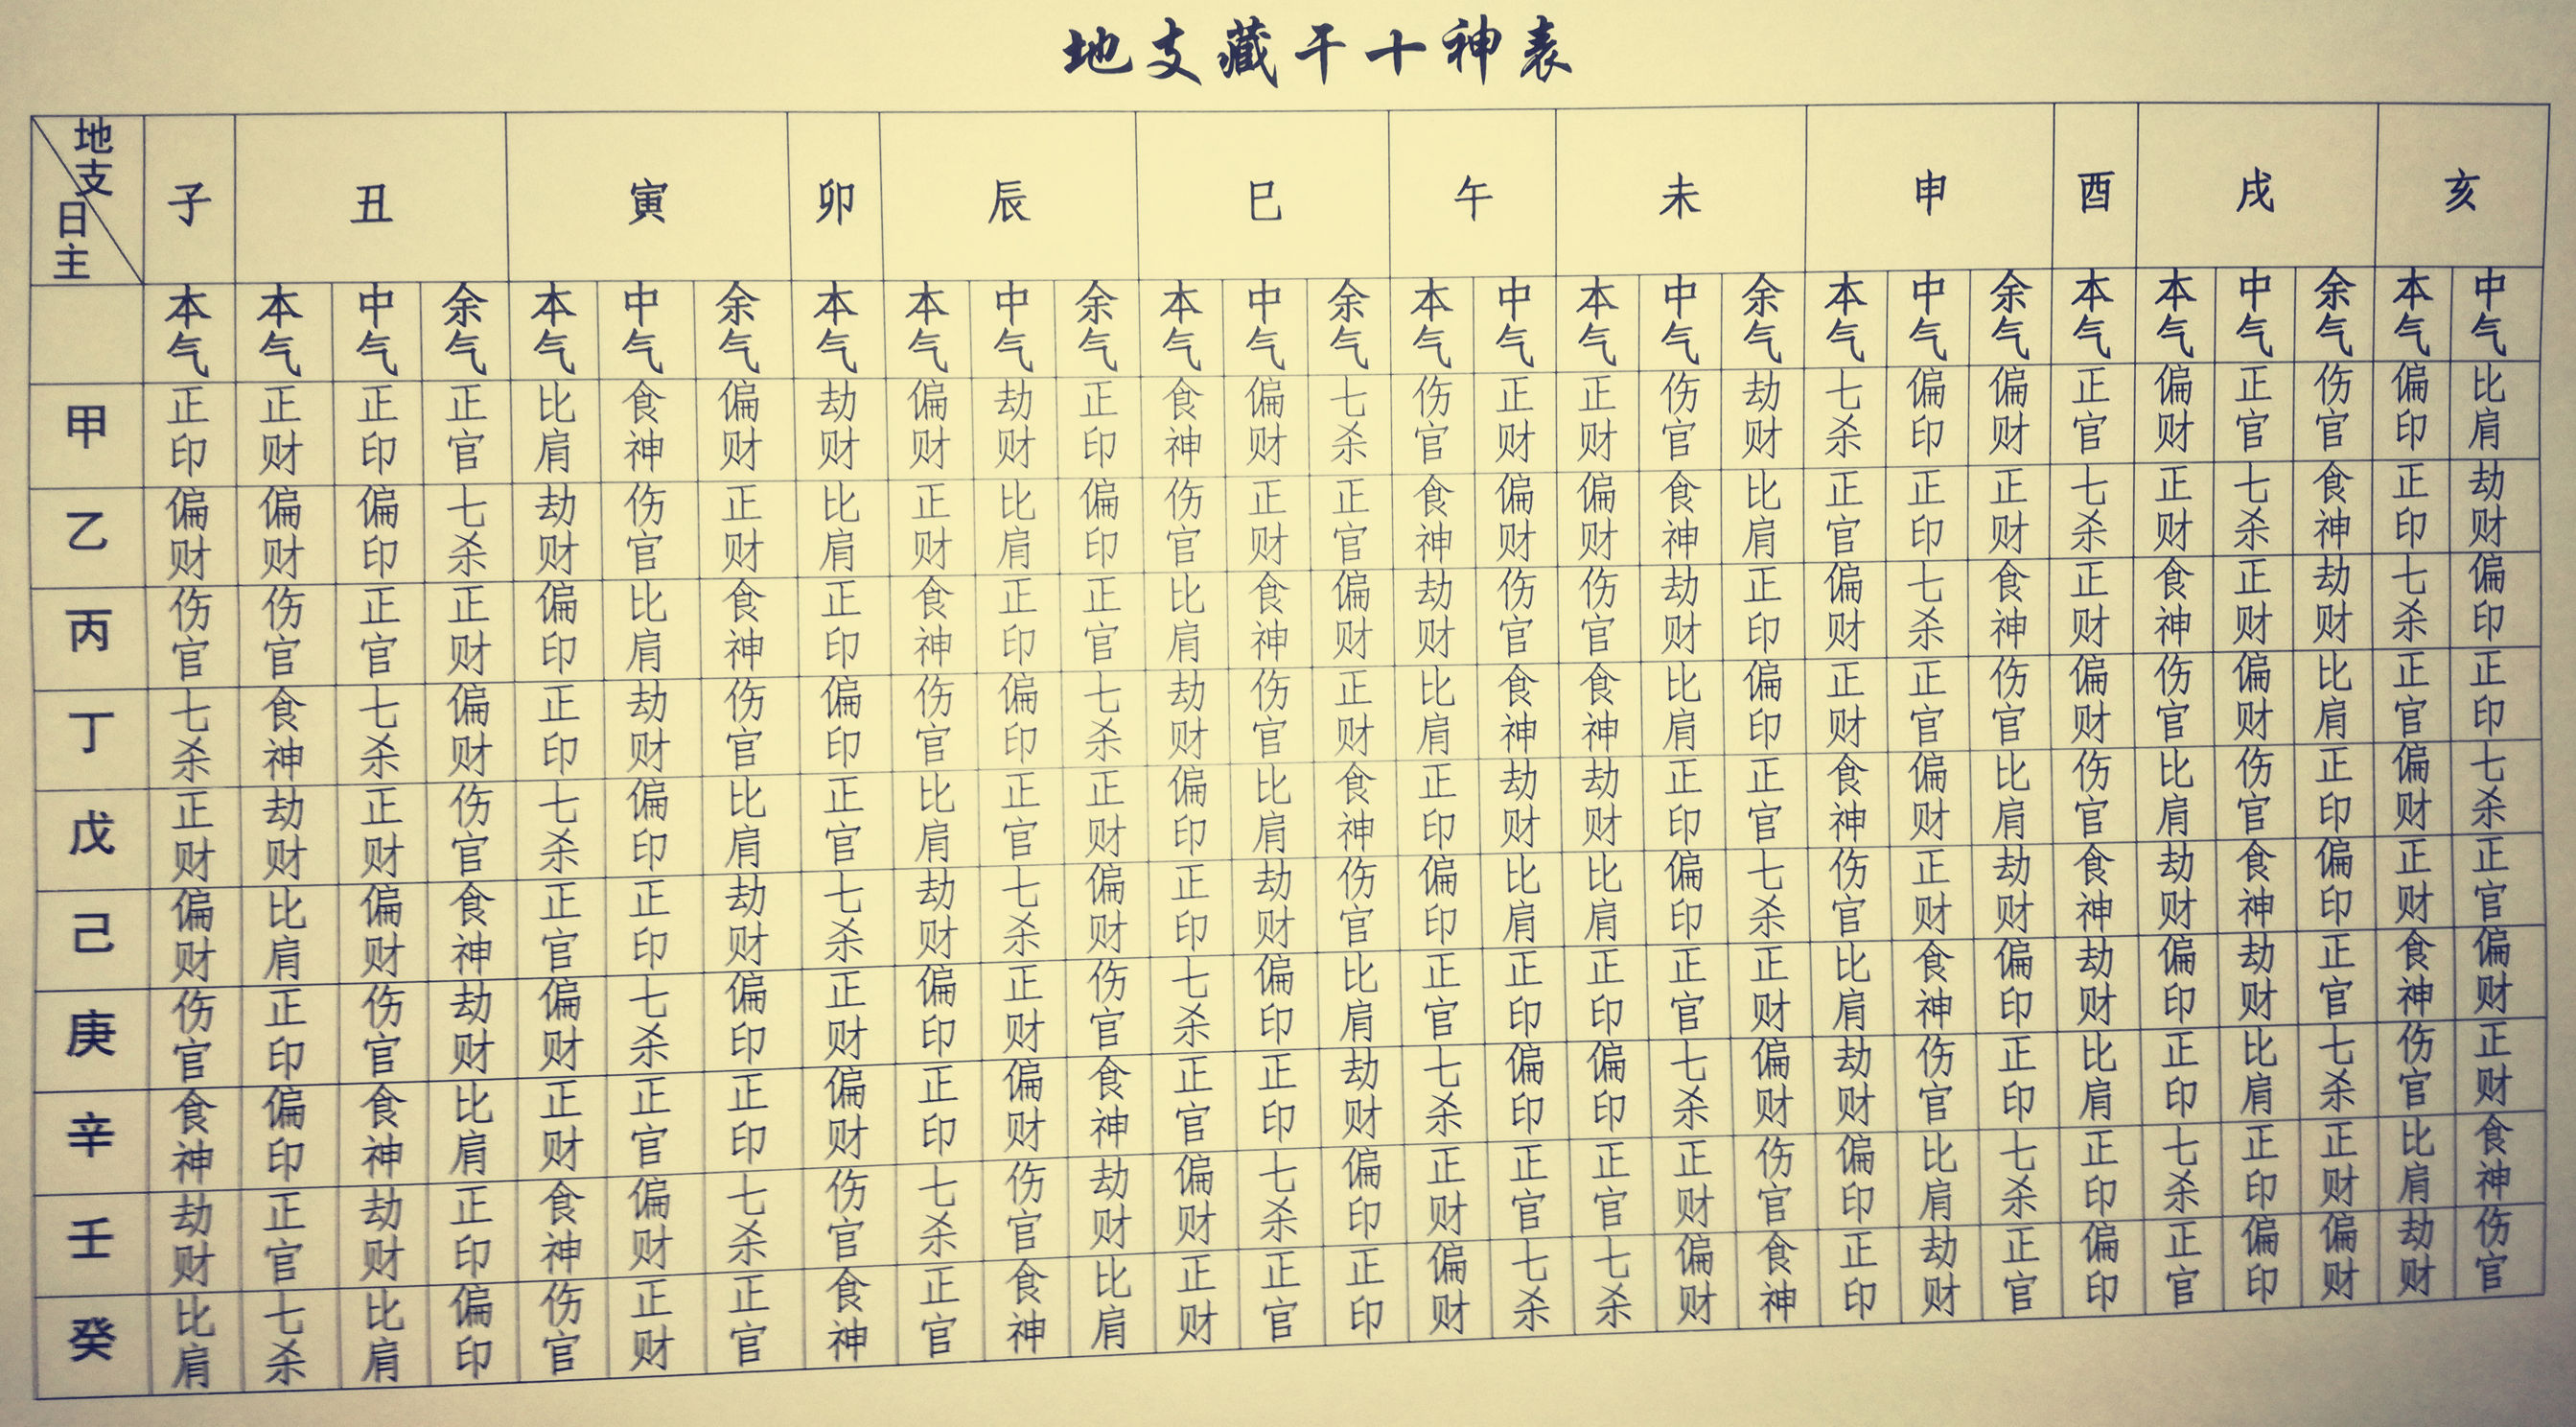 地支藏干十神表
地支 日主 子 丑 寅 卯 辰 巳 午 未 申 酉 戌 亥
本气 本气 中气 余气 本气 中气 余气 本气 本气 中气 余气 本气 中气 余气 本气 中气 本气 中气 余气 本气 中气 余气 本气 本气 中气 余气 本气 中气
甲 正印 正财 正印 正官 比肩 食神 偏财 劫财 偏财 劫财 正印 食神 偏财 七杀 伤官 正财 正财 伤官 劫财 七杀 偏印 偏财 正官 偏财 正官 伤官 偏印 比肩
乙 偏财 偏财 偏印 七杀 劫财 伤官 正财 比肩 正财 比肩 偏印 伤官 正财 正官 食神 偏财 偏财 食神 比肩 正官 正印 正财 七杀 正财 七杀 食神 正印 劫财
丙 伤官 伤官 正官 正财 偏印 比肩 食神 正印 食神 正印 正官 比肩 食神 偏财 劫财 伤官 伤官 劫财 正印 偏财 七杀 食神 正财 食神 正财 劫财 七杀 偏印
丁 七杀 食神 七杀 偏财 正印 劫财 伤官 偏印 伤官 偏印 七杀 劫财 伤官 正财 比肩 食神 食神 比肩 偏印 正财 正官 伤官 偏财 伤官 偏财 比肩 正官 正印
戊 正财 劫财 正财 伤官 七杀 偏印 比肩 正官 比肩 正官 正财 偏印 比肩 食神 正印 劫财 劫财 正印 正官 食神 偏财 比肩 伤官 比肩 伤官 正印 偏财 七杀
己 偏财 比肩 偏财 食神 正官 正印 劫财 七杀 劫财 七杀 偏财 正印 劫财 伤官 偏印 比肩 比肩 偏印 七杀 伤官 正财 劫财 食神 劫财 食神 偏印 正财 正官
庚 伤官 正印 伤官 劫财 偏财 七杀 偏印 正财 偏印 正财 伤官 七杀 偏印 比肩 正官 正印 正印 正官 正财 比肩 食神 偏印 劫财 偏印 劫财 正官 食神 偏财
辛 食神 偏印 食神 比肩 正财 正官 正印 偏财 正印 偏财 食神 正官 正印 劫财 七杀 偏印 偏印 七杀 偏财 劫财 伤官 正印 比肩 正印 比肩 七杀 伤官 正财
壬 劫财 正官 劫财 正印 食神 偏财 七杀 伤官 七杀 伤官 劫财 偏财 七杀 偏印 正财 正官 正官 正财 伤官 偏印 比肩 七杀 正印 七杀 正印 正财 比肩 食神
癸 比肩 七杀 比肩 偏印 伤官 正财 正官 食神 正官 食神 比肩 正财 正官 正印 偏财 七杀 七杀 偏财 食神 正印 劫财 正官 偏印 正官 偏印 偏财 劫财 伤官